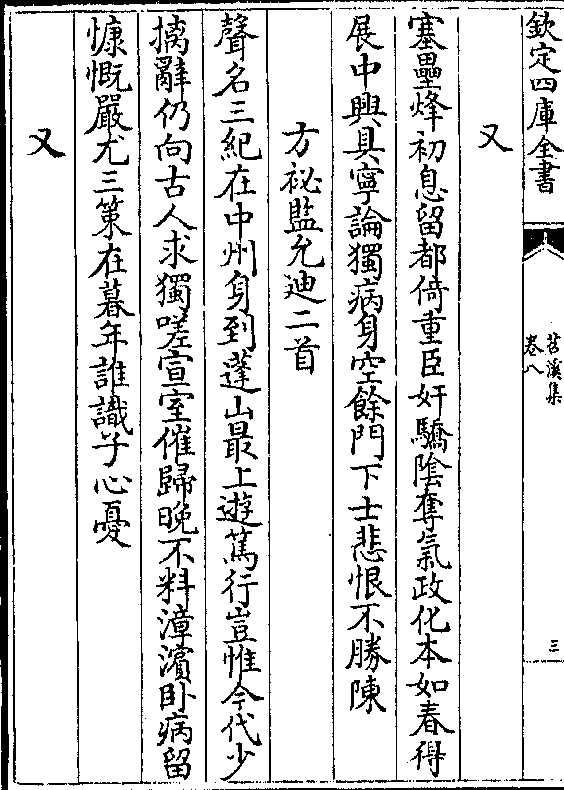 欽定四庫全書
苕溪集
卷八
三
又
塞壘烽初息留都倚重臣奸驕陰奪氣政化本如春得
展中興具寧論獨病身空餘門下士悲恨不勝陳
方祕監允迪二首
聲名三紀在中州身到蓬山最上遊篤行豈惟今代少
摛辭仍向古人求獨嗟宣室催歸晚不料漳濱卧病留
慷慨嚴尤三策在暮年誰識子心憂
又